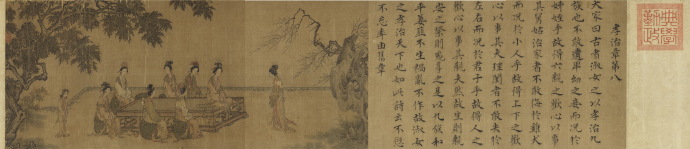 典學勤政
孝治章第八
大家曰古者淑女之以孝治九
族也不敢遺卑幼之妾而況於
娣姪乎故得六親之歡心以事
其舅姑治家者不敢侮於雞犬
而況於小人乎故得上下之歡
心以事其夫理閨者不敢失於
左右而況於君子乎故得人之
歡心以事其親夫然故生則親
安之祭則鬼享之是以九族和
平萋菲不生禍亂不作故淑女
之孝治天下也如此詩云不愆
不忘率由舊章